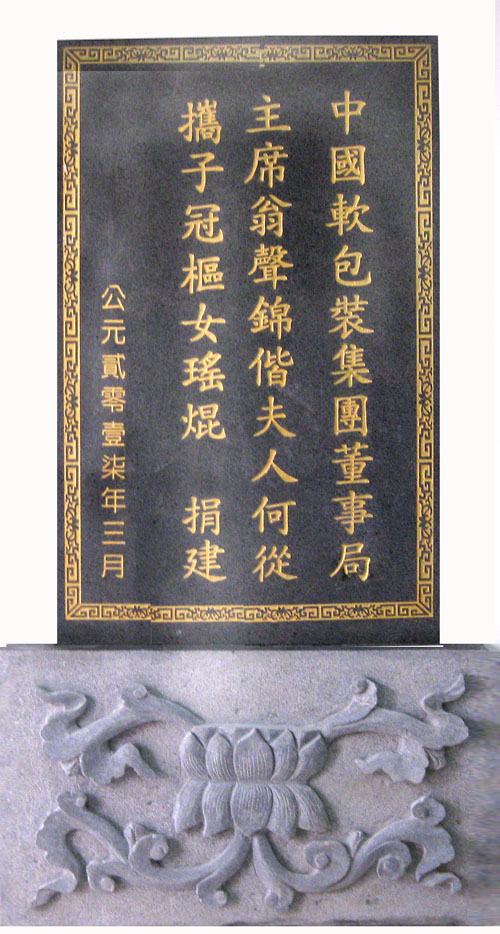 中國軟包裝集團董事局
主席翁聲錦偕夫人何從
攜子冠樞女瑤焜 捐建
公元貳零壹柒年三月